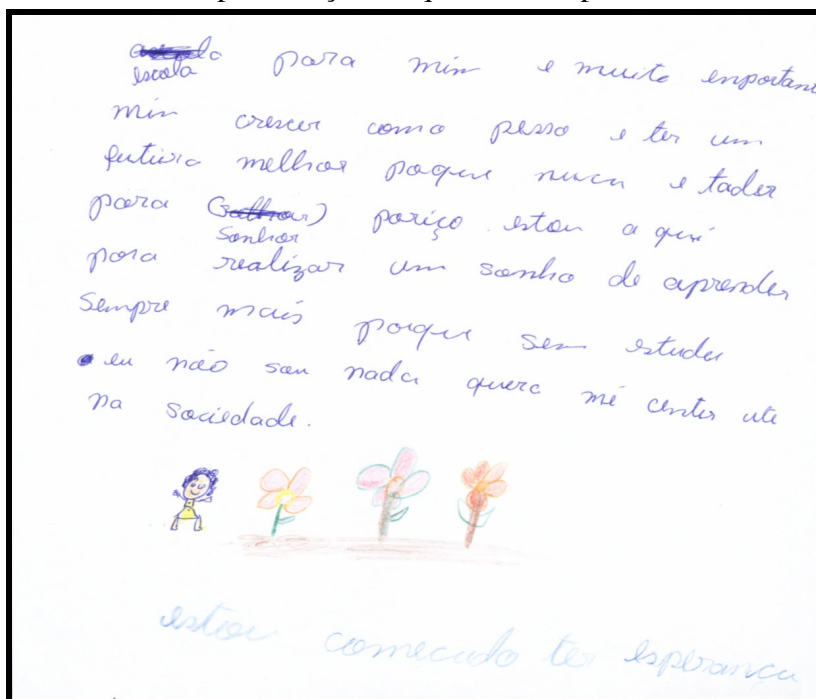 escola para min e muito enportan
min crescer como pesso e ter um
futuro melhor poque nucu e tader
para sonhar poriço estou a qui
para realizar um sonho de aprender
Sempre mais poque sem estudu
eu não sou nada quero mé centir ute
na sociedade.
estou comecudo ter esperança